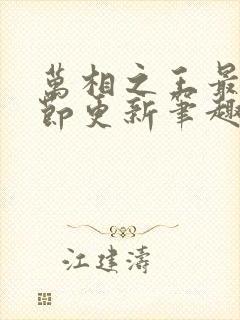 萬相之王最
節更新筆趣
江建濤